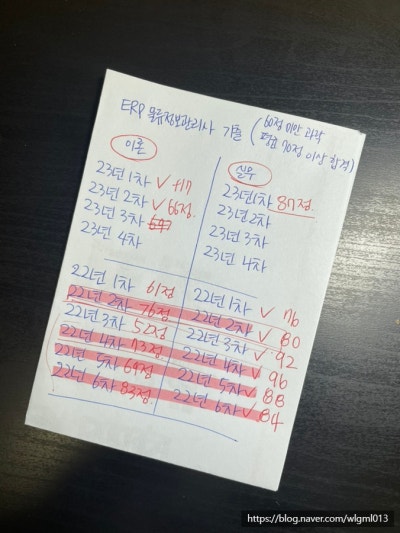 ERP 물류정보관리사 기출 (60점 미만 과락
평균 70점 이상 합격)
이론
23년 1차 ✓
23년 2차 ✓ 66점.
23년 3차
23년 4차
실무
23년 1차 87점
23년 2차
23년 3차
23년 4차
22년 1차 61점
22년 2차 76점
22년 3차 52점
22년 4차 73점
22년 5차 69점
22년 6차 83점
22년 1차 ✓ 76
22년 2차 ✓ 80
22년 3차 ✓ 92
22년 4차 ✓ 96
22년 5차 ✓ 88
22년 6차 ✓ 84
https://blog.naver.com/wlgml013